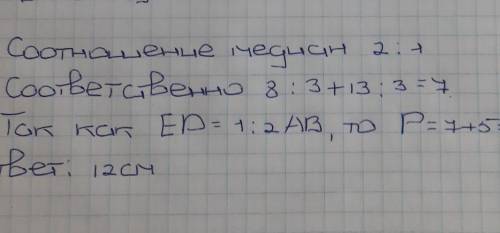 Соотношение медиан 2:1
Соответственно 8:3+13:3=7
Так как ED=1:2AB, то P=7+5
вет: 12см